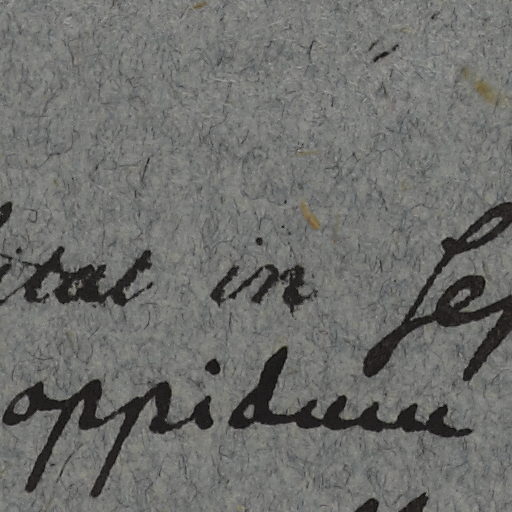 itat in Sep
oppidum